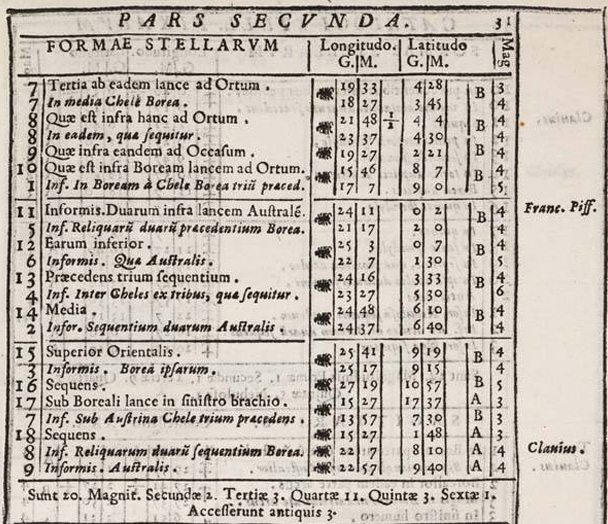 PARS SECVNDA. 31
FORMAE STELLARVM Longitudo. Latitudo Mag
G. M. G. M.
7 Tertia ab eadem lance ad Ortum. 19 33 4 28 B 3
7 In media Chele Borea. 18 27 3 45 4
8 Quæ est infra hanc ad Ortum. 21 48 1/2 4 4 B 4
8 In eadem, quæ sequitur. 23 37 4 30 4
9 Quæ infra eandem ad Occasum. 19 27 2 21 B 4
10 Quæ est infra Boream lancem ad Ortum. 15 46 8 7 B 4
1 Inf. In Boream à Chele Borea triū præced. 17 7 9 0 5
11 Informis. Duarum infra lancem Australē. 24 11 0 2 B 4
5 Inf. Reliquarū duarū præcedentium Borea. 21 17 2 0 4
12 Earum inferior. 25 3 0 7 B 4
6 Informis. Quæ Australis. 22 7 1 30 5
13 Præcedens trium sequentium. 24 16 3 33 B 4
4 Inf. Inter Cheles ex tribus, quæ sequitur. 23 27 5 30 6
14 Media. 24 48 6 10 B 4
2 Infor. Sequentium duarum Australis 24 37 6 40 4
15 Superior Orientalis. 25 41 9 19 B 4
3 Informis. Borea ipsarum. 25 17 9 15 4
16 Sequens. 27 19 10 57 B 5
17 Sub Boreali lance in sinistro brachio. 15 27 17 37 A 3
7 Inf. Sub Austrina Chele trium præcedens. 13 57 7 30 B 3
18 Sequens. 15 27 1 48 A 3
8 Inf. Reliquarum duarū sequentium Borea. 22 7 8 10 A 4
9 Informis. Australis. 22 57 9 40 A 4
Sunt 20. Magnit. Secundæ 2. Tertiæ 3. Quartæ 11. Quintæ 3. Sextæ 1.
Accesserunt antiquis 3.
Franc. Piff.
Clauius.